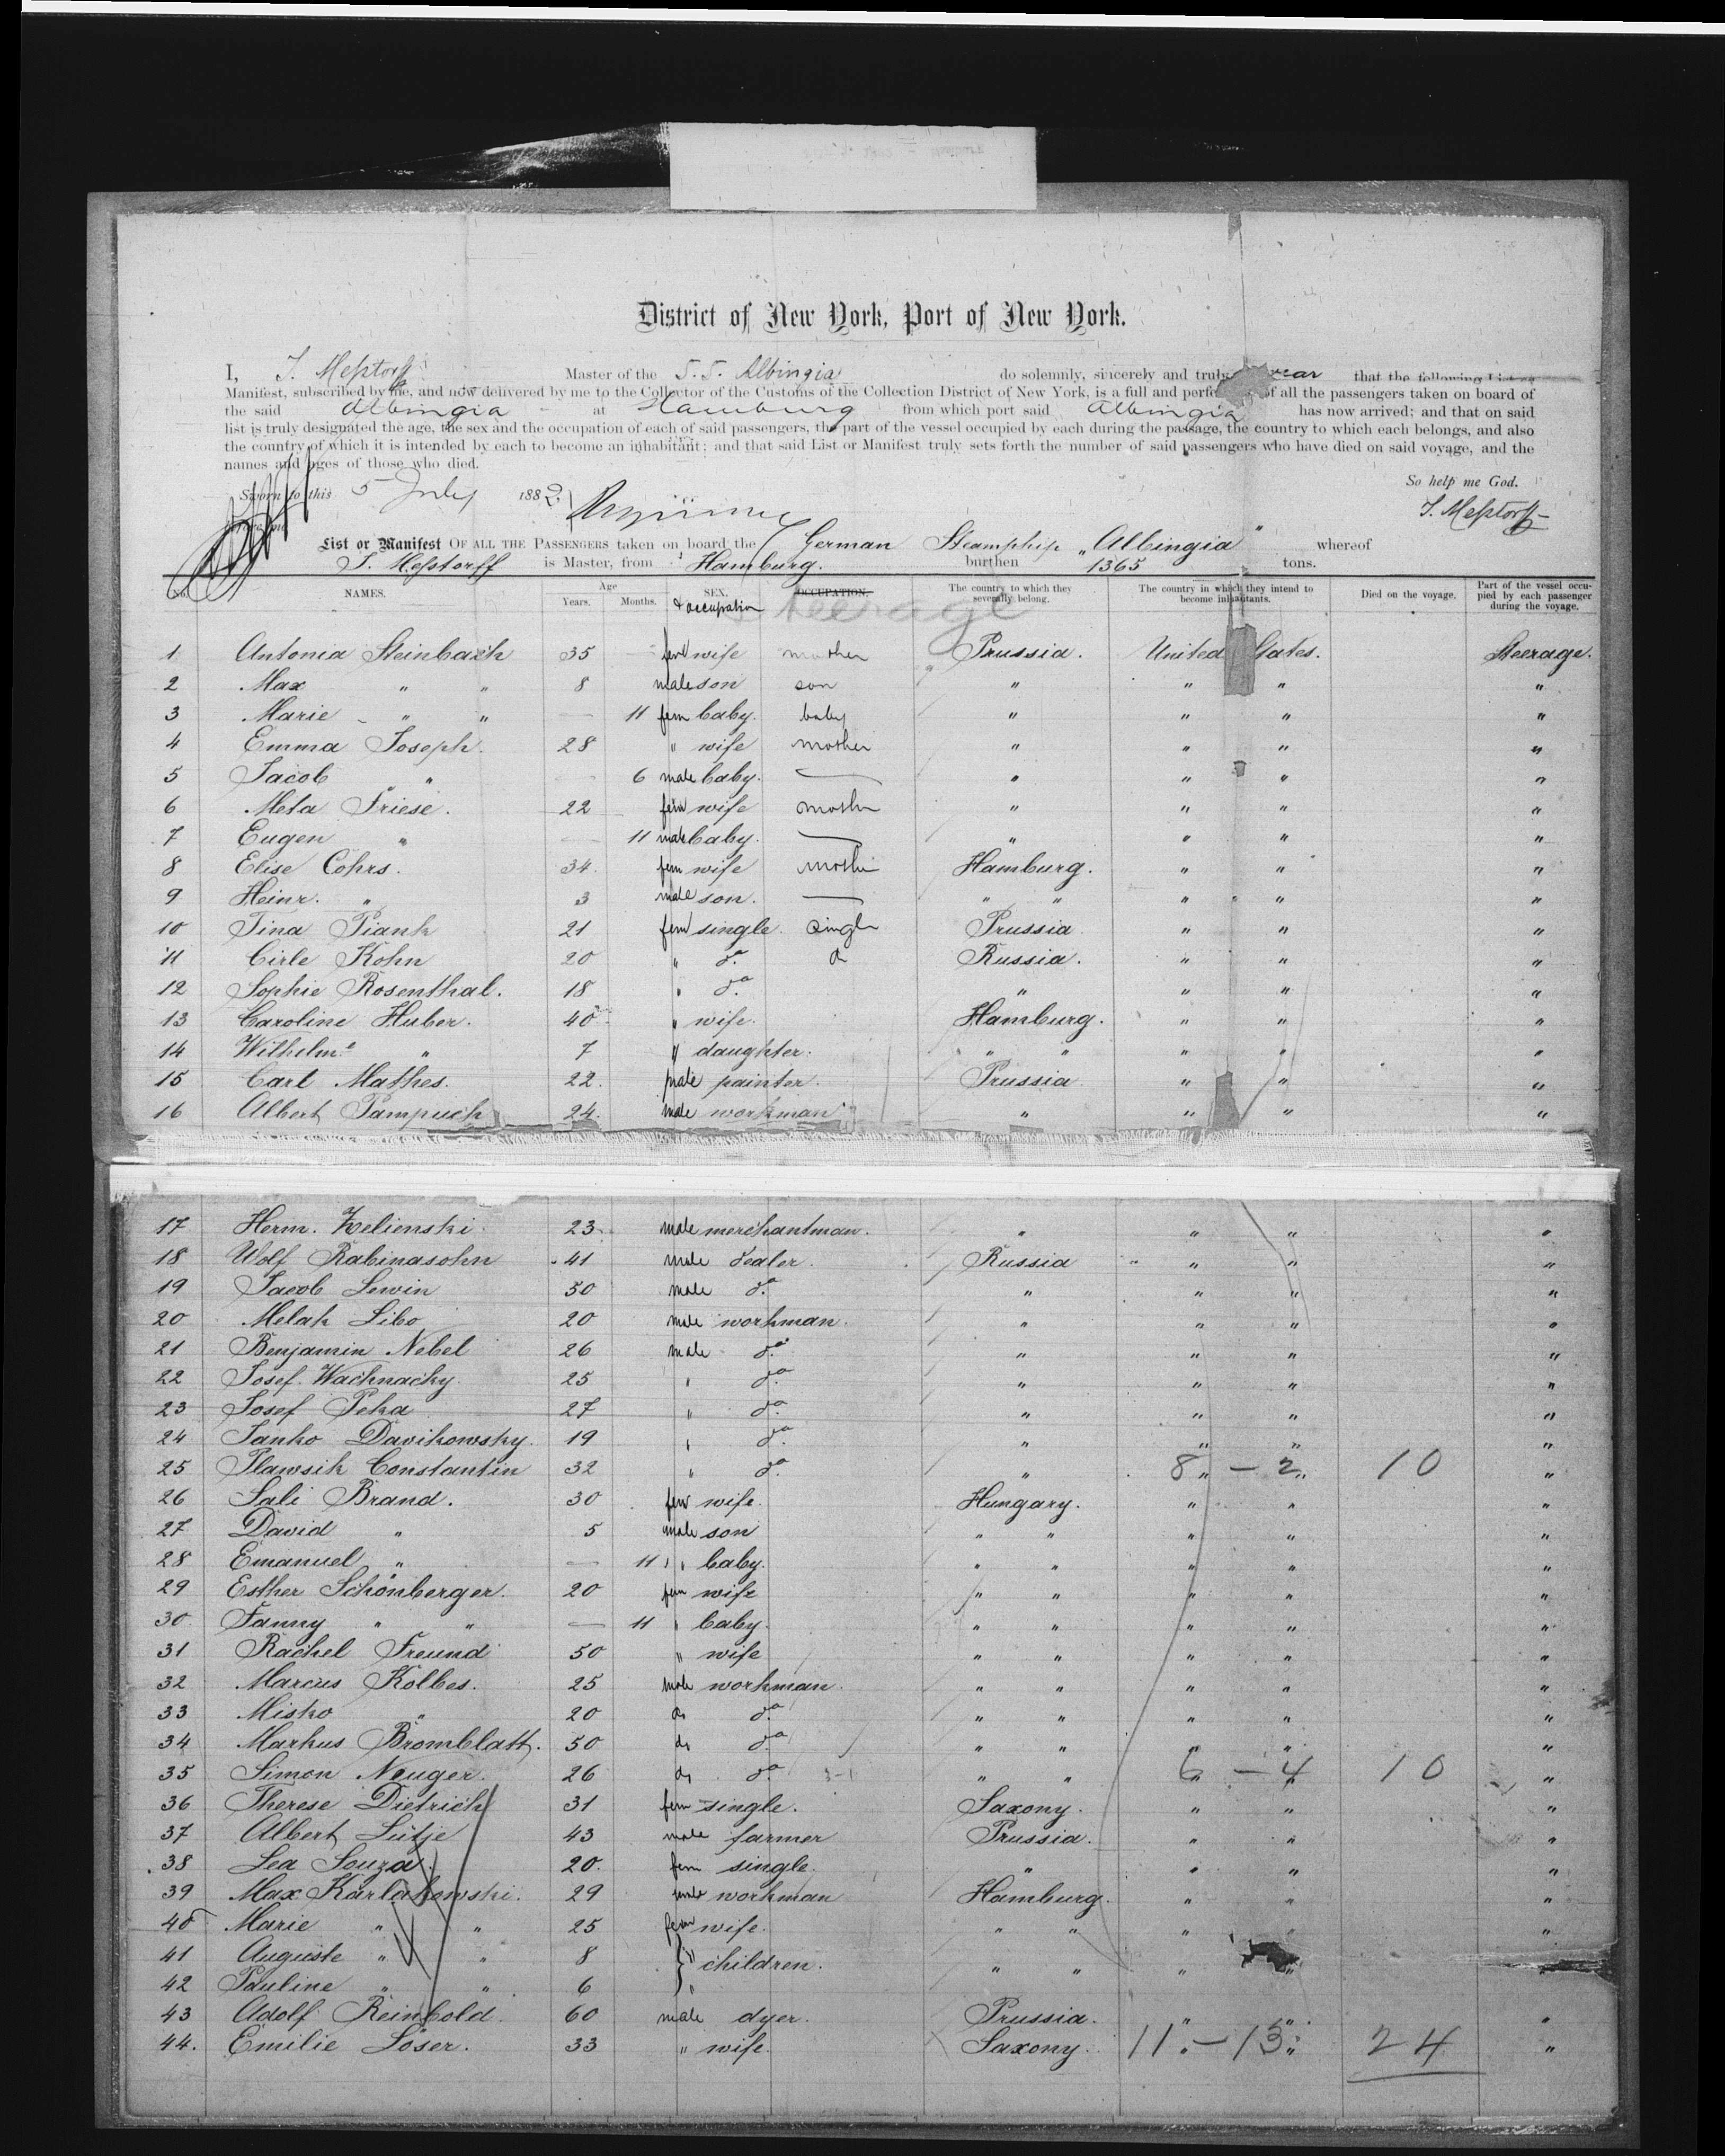 District of New York, Port of New York.
I, J. Meßtorff Master of the S.S. Albingia do solemnly, sincerely and truly swear that the following List or
Manifest, subscribed by me, and now delivered by me to the Collector of the Customs of the Collection District of New York, is a full and perfect of all the passengers taken on board of
the said Albingia at Hamburg from which port said Albingia has now arrived; and that on said
list is truly designated the age, the sex and the occupation of each of said passengers, the part of the vessel occupied by each during the passage, the country to which each belongs, and also
the country of which it is intended by each to become an inhabitant; and that said List or Manifest truly sets forth the number of said passengers who have died on said voyage, and the
names and ages of those who died.
So help me God.
Sworn to this 5 July 1882
J. Meßtorff
List or Manifest OF ALL THE PASSENGERS taken on board the German Steamship "Albingia" whereof
J. Meßtorff is Master, from Hamburg. burthen 1365 tons.
No. NAMES. Age Years. Months. SEX. & occupation OCCUPATION. The country to which they severally belong. The country in which they intend to become inhabitants. Died on the voyage. Part of the vessel occupied by each passenger during the voyage.
Steerage
1 Antonia Steinbach 35 fem wife mother Prussia. United States. Steerage.
2 Max " " 8 male son son " " " "
3 Marie " " — 11 fem baby. baby " " " "
4 Emma Joseph. 28 " wife mother " " " "
5 Jacob " — 6 male baby. — " " " "
6 Meta Friese. 22 fem wife mother " " " "
7 Eugen " — 11 male baby. — " " " "
8 Elise Cohrs. 34. fem wife mother Hamburg. " " "
9 Heinr. " 3 male son. — " " " " "
10 Tina Piank 21 fem single. single Prussia " " "
11 Cirle Kohn 20 " do. do Russia. " " "
12 Sophie Rosenthal. 18 " do. " " " "
13 Caroline Huber. 40 " wife. Hamburg. " " "
14 Wilhelm.e " 7 " daughter. " " " " "
15 Carl Mathes. 22. male painter. Prussia " " "
16 Albert Pampuch 24. male workman " " " "
17 Herm. Zelienski 23. male merchantman. " " " "
18 Wolf Rabinasohn 41 male dealer. Russia " " "
19 Jacob Lewin 50 male do. " " " "
20 Melak Libo 20 male workman. " " " "
21 Benjamin Nebel 26 male do. " " " "
22 Josef Wachnacky. 25 " do. " " " "
23 Josef Peka 27 " do. " " " "
24 Janko Davikowsky. 19 " do. " " " "
25 Plawsik Constantin 32 " do. " 8 " — 2 " 10 "
26 Sali Brand. 30 fem wife. Hungary. " " "
27 David " 5 male son " " " " "
28 Emanuel " — 11 " baby. " " " " "
29 Esther Schönberger. 20 fem wife " " " " "
30 Fanny " " — 11 " baby. " " " " "
31 Rachel Freund 50 " wife " " " " "
32 Marcus Kolbes. 25 male workman. " " " " "
33 Misko " 20 do do. " " " " "
34 Markus Bromblatt. 50 do do. " " " " "
35 Simon Neuger. 26 do do. 3-1 " " 6 — 4 10 "
36 Therese Dietrich 31 fem single. Saxony. " " "
37 Albert Lütje 43 male farmer Prussia. " " "
38 Lea Souza. 20. fem single. " " " "
39 Max Karlakowski. 29 male workman Hamburg. " " "
40 Marie " " 25 fem wife. " " " " "
41 Auguste " " 8 } " children. " " " " "
42 Pauline " " 6 "
43 Adolf Reinbold. 60 male dyer. Prussia. " " "
44. Emilie Löser. 33 " wife. Saxony. 11 " — 13 " 24 "